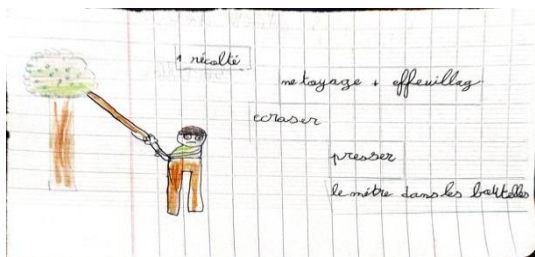 1 récolté
netoyage + effeuillag
ecraser
presser
le mètre dans les boutelles